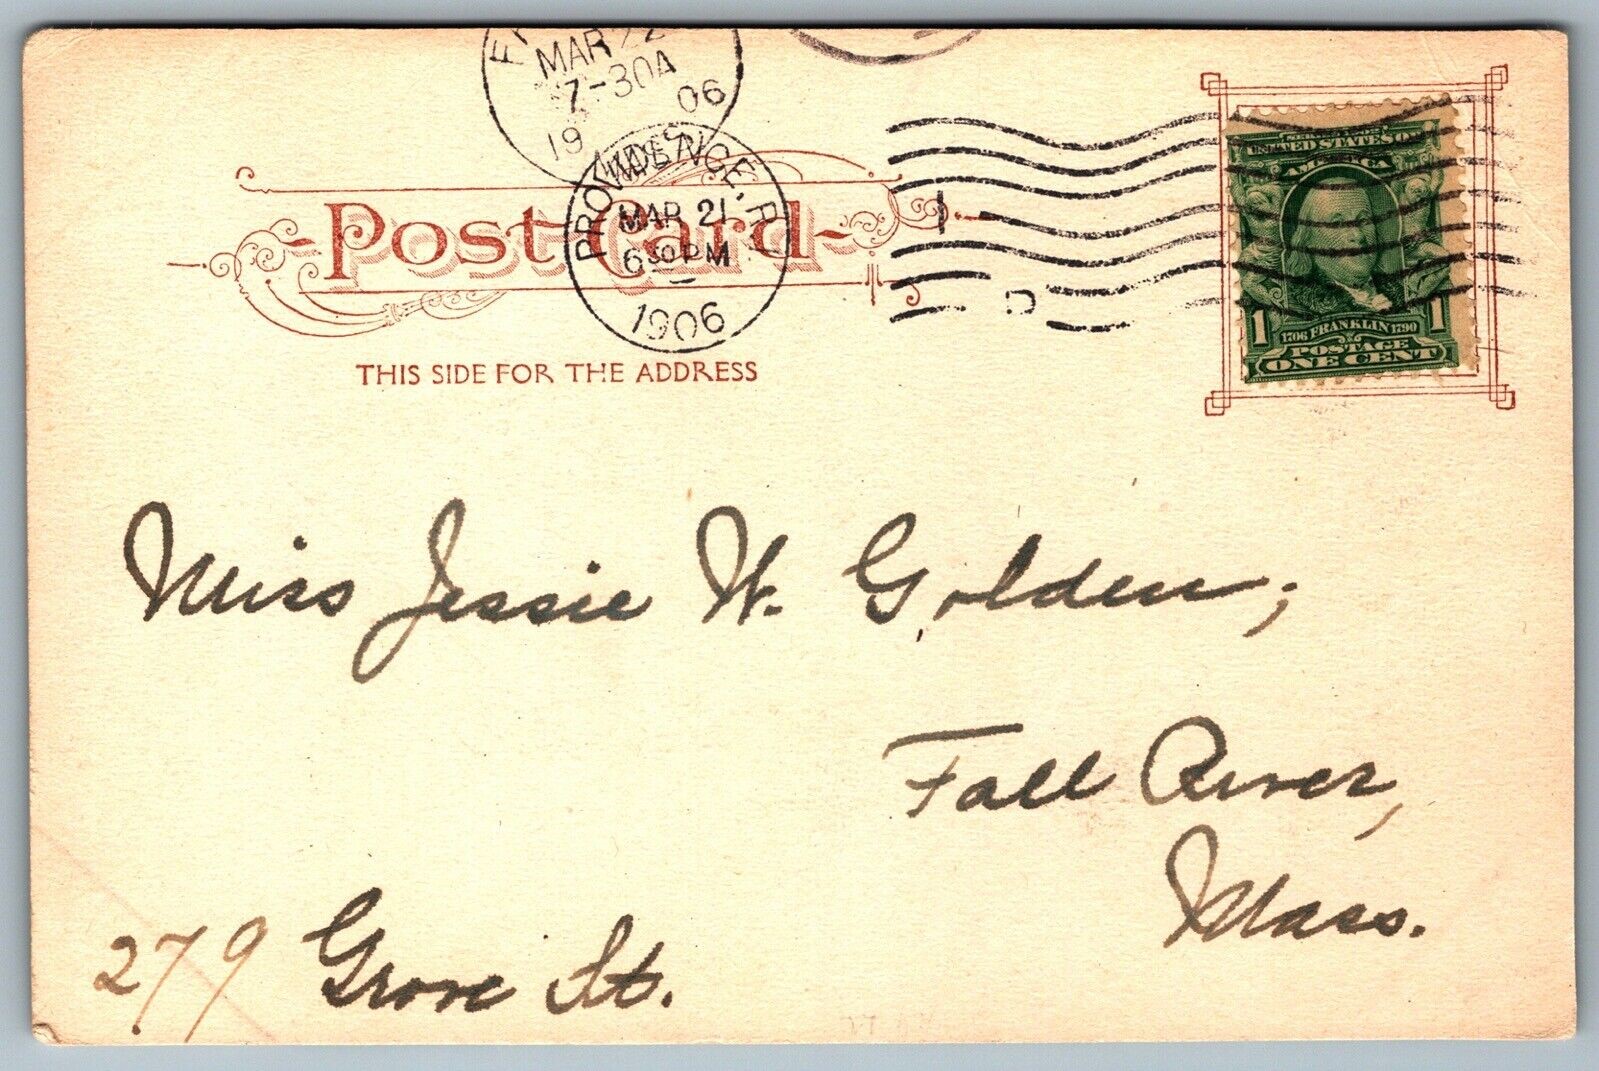 MAR 22
7-30A
19 06
MASS
PROVIDENCE, R.I.
MAR 21
6 30 PM
1906
Post Card
THIS SIDE FOR THE ADDRESS
UNITED STATES OF
AMERICA
1 1
1706 FRANKLIN 1790
POSTAGE
ONE CENT
Miss Jessie W. Golden;
Fall River,
Mass.
279 Grove St.